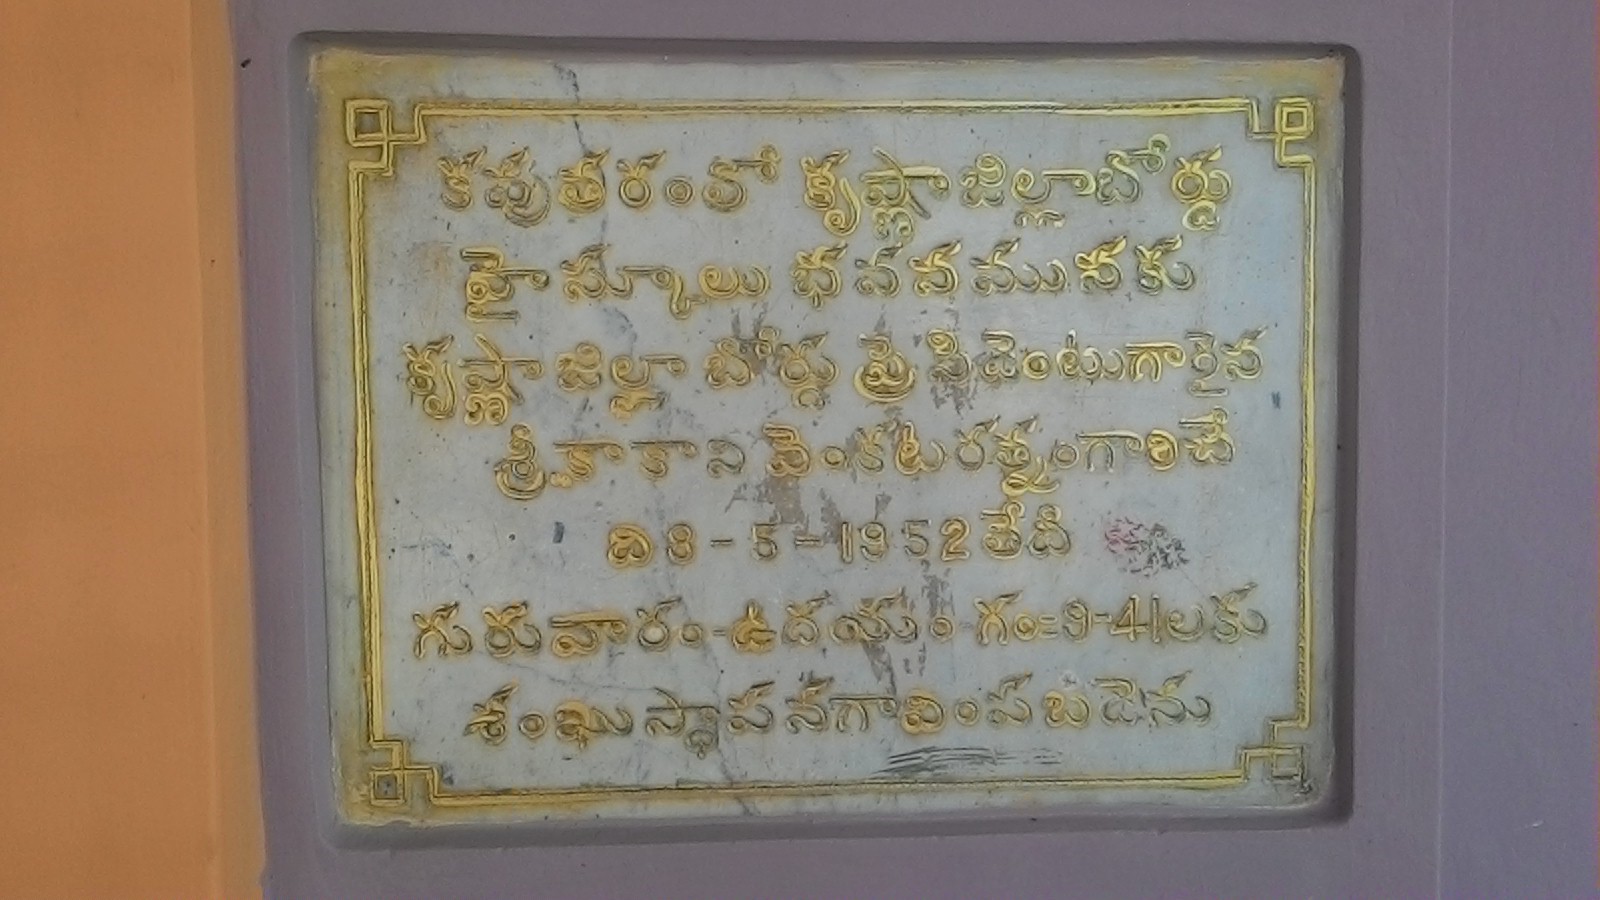 కవుతరంలో కృష్ణాజిల్లాబోర్డు
హైస్కూలు భవనమునకు
కృష్ణాజిల్లా బోర్డు ప్రెసిడెంటుగారైన
శ్రీ కాకాని వెంకటరత్నంగారిచే
ది 8-5-1952 తేది
గురువారం-ఉదయం గం॥9-41లకు
శంఖుస్థాపనగావింపబడెను